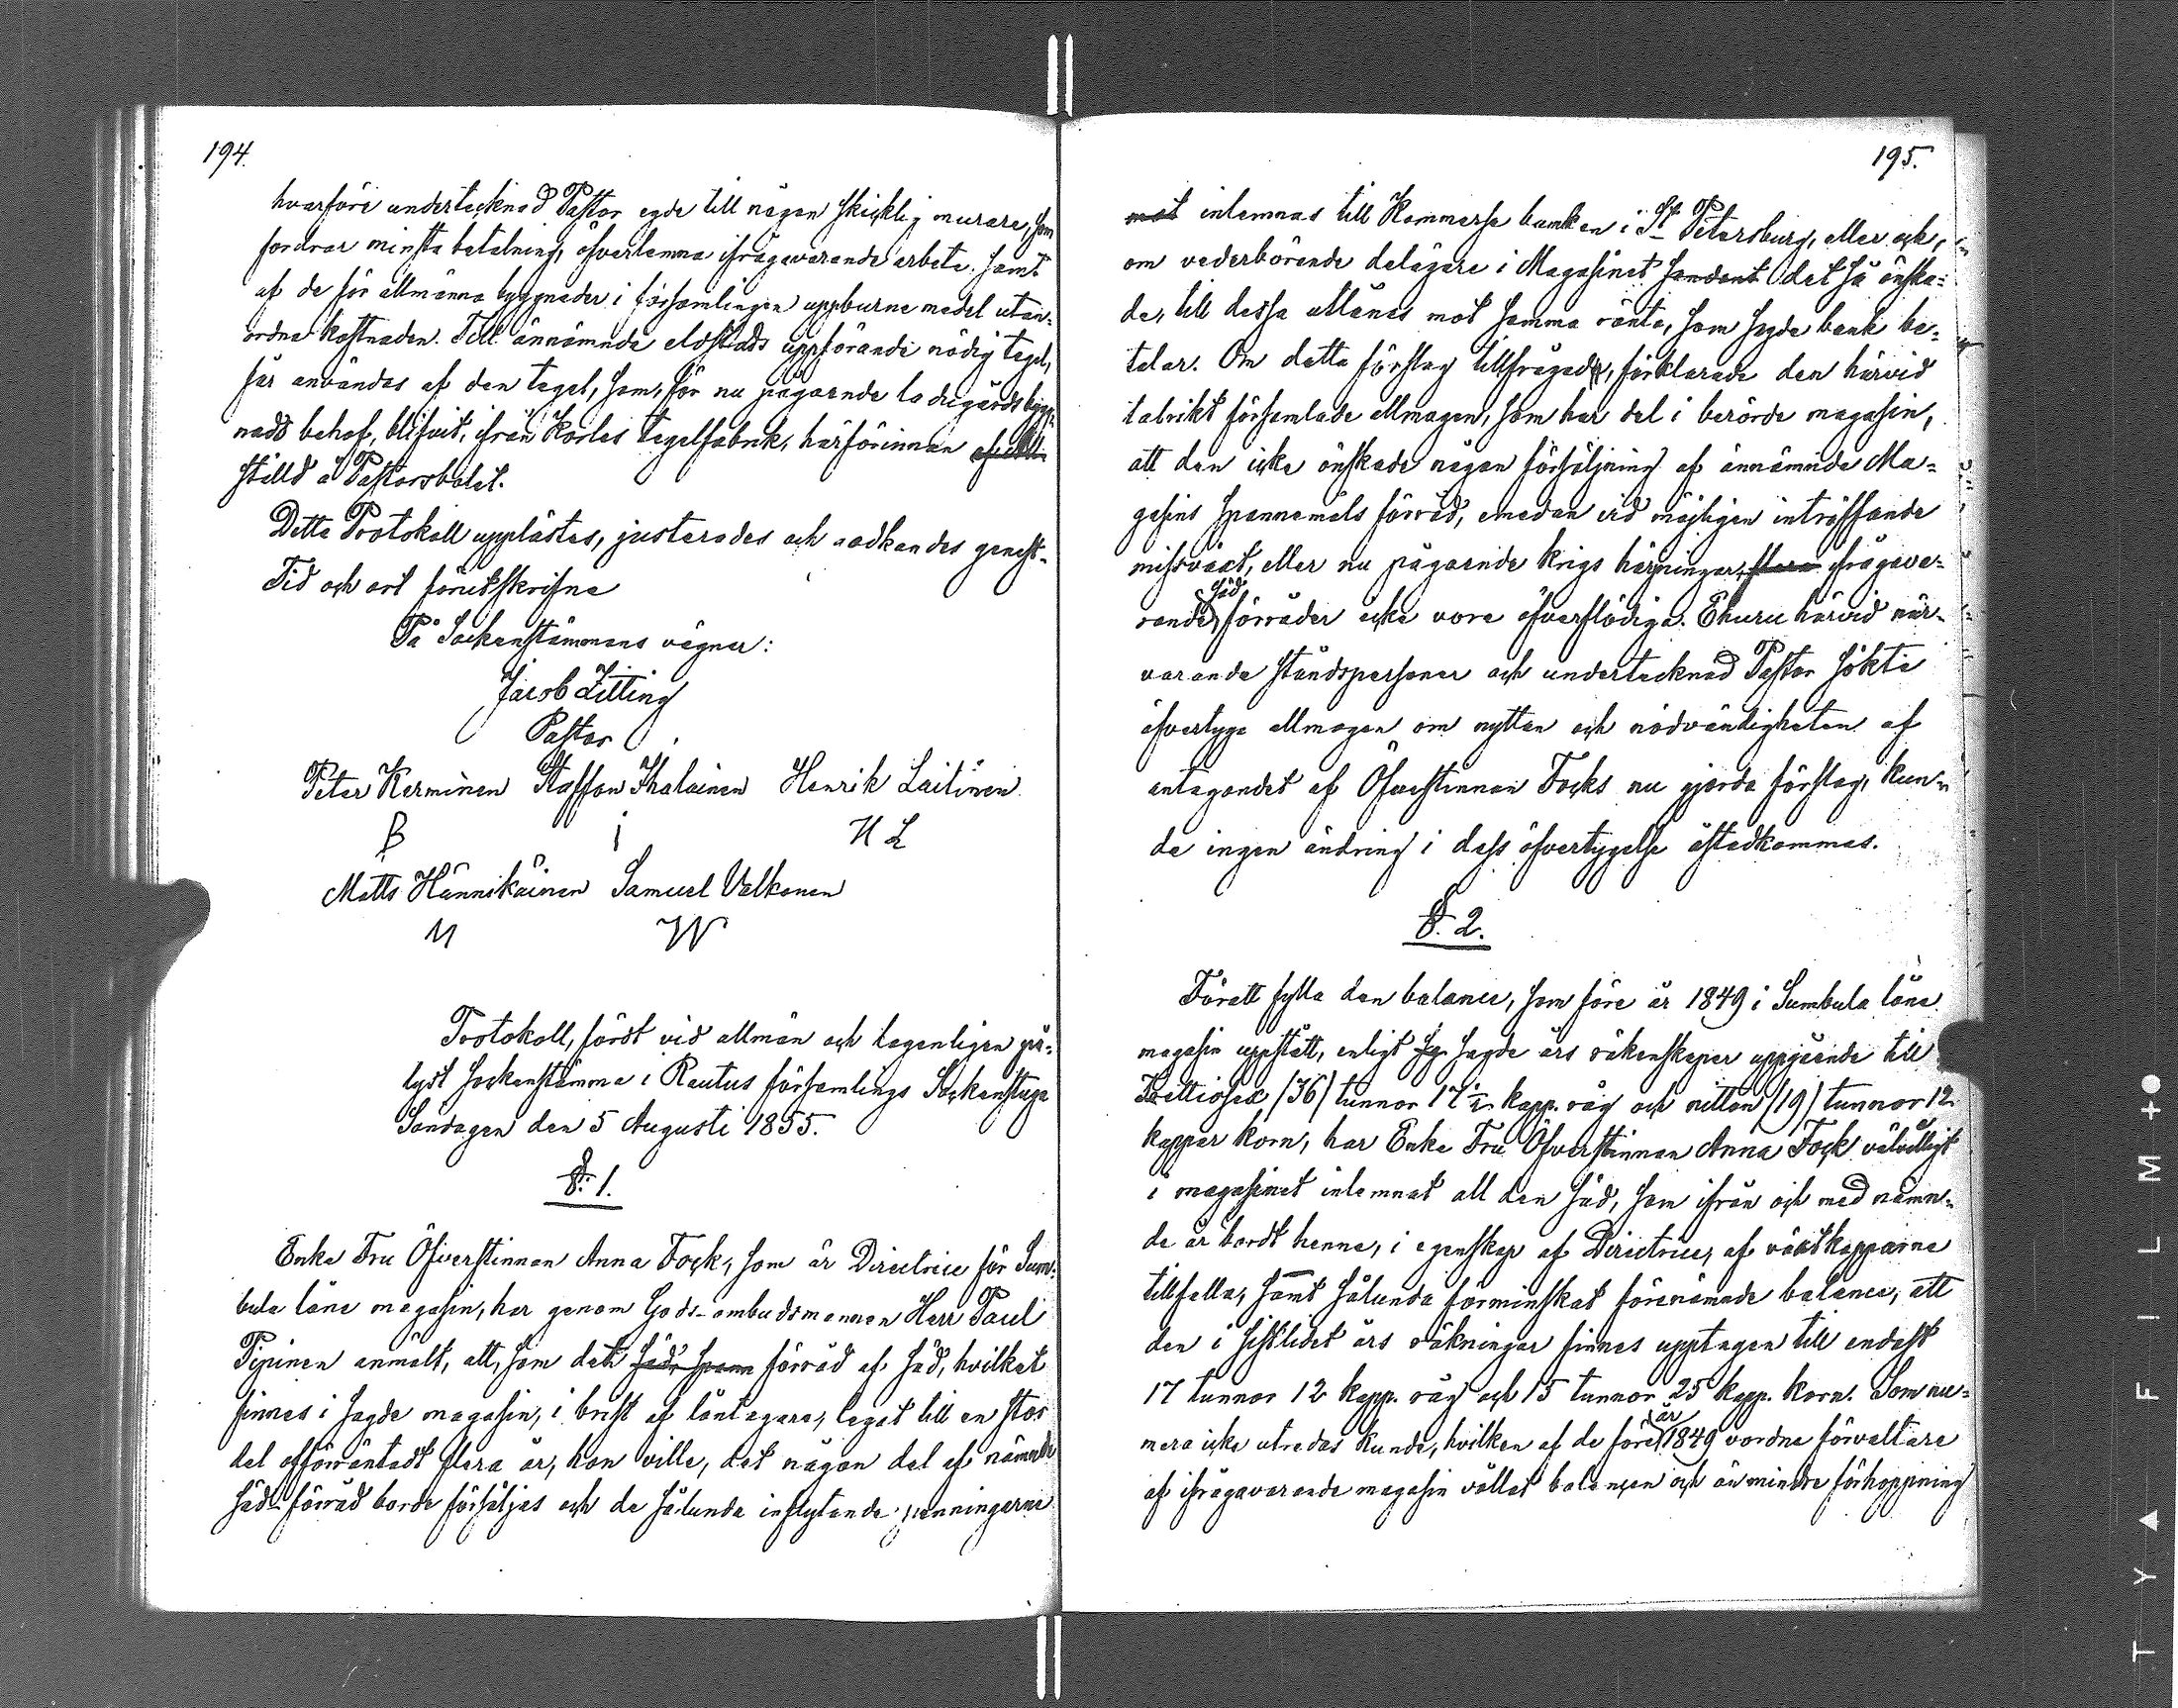 194.
hvarföre undertecknad Pastor egde till någon skicklig murare, som
fordrar minsta betalning, öfverlemna ifrågavarande arbete samt
af de för allmänna byggnader i församlingen uppburne medel utan-
ordna kostnaden. Till ännämnde eldstads uppförande nödig tegel,
får användas af den tegel, som, för nu pågående ladugårds bygg-
nads behof, blifvit, ifrån Korles tegelfabrik, härförinnan
ställd å Pastorsbolet.
Detta Protokoll upplästes, justerades och godkändes genast.
Tid och ort förutskrifne
På Sockenstämmans vägnar:
Jacob Zitting
Pastor
Peter Kerminen Staffan Ihalainen Henrik Laitinen
B I H L
Matts Hännikäinen Samuel Valkonen
M W
Protokoll, fördt vid allmän och lagenligen på-
lyst sockenstämma i Rautus församlings Sockenstuga
Söndagen den 5 Augusti 1855.
§. 1.
Enke Fru Öfverstinnan Anna Fock, som är Directrice för Sum-
bula låne magasin, har genom Gods-ombudsmannen Herr Paul
Pipinen anmält, att, som det säds spann förråd af säd, hvilket
finnes i sagde magasin, i brist af låntagare, legat till en stor
del oförräntadt flera år, hon ville, det någon del af nämnde
säds förråd borde försäljas och de sålunda inflytande penningarne
195.
mot inlemnas till Kommerse banken i St Petersburg, eller och,
om vederbörande delägare i Magasinet det så önska-
de, till dessa utlånas mot samma ränta, som sagde bank be-
talar. Om detta förslag tillfrågade, förklarade den härvid
talrikt församlade allmogen, som har del i berörde magasin,
att den icke önskade någon försäljning af ännämnde Ma-
gasins spannemåls förråd, emedan vid möjligen inträffande
missväxt, eller nu pågående krigs härjningar, flera ifrågava-
rande säd förråder icke vore öfverflödiga. Ehuru härvid när-
varande ståndspersoner och undertecknad Pastor sökte
öfvertyga allmogen om nyttan och nödvändigheten af
antagandet af Öfverstinnan Focks nu gjorda förslag, kun-
de ingen ändring i dess öfvertygelse åstadkommas.
§. 2.
Föratt fylla den balance, som före år 1849 i Sumbula låne
magasin uppstått, enligt sg sagde års räkenskaper uppgående till
Trettiosex /36/ tunnor 17½ kapp. råg och nitton /19/ tunnor 12
kappar korn, har Enke Fru Öfverstinnan Anna Fock välvilligt
i magasinet inlemnat all den säd, som ifrån och med nämn-
de år bordt henne, i egenskap af Directrice, af växtkapparne
tillfalla, samt sålunda förminskat förenämnde balance, att
den i sistlidet års räkningar finnes upptagen till endast
17 tunnor 12 kapp. råg och 15 tunnor 25 kapp. korn. Som nu-
mera icke utredas kunde, hvilken af de före år 1849 vordne förvaltare
af ifrågavarande magasin vållat balancen och än mindre förhoppning
T Y ▲ F I L M +●